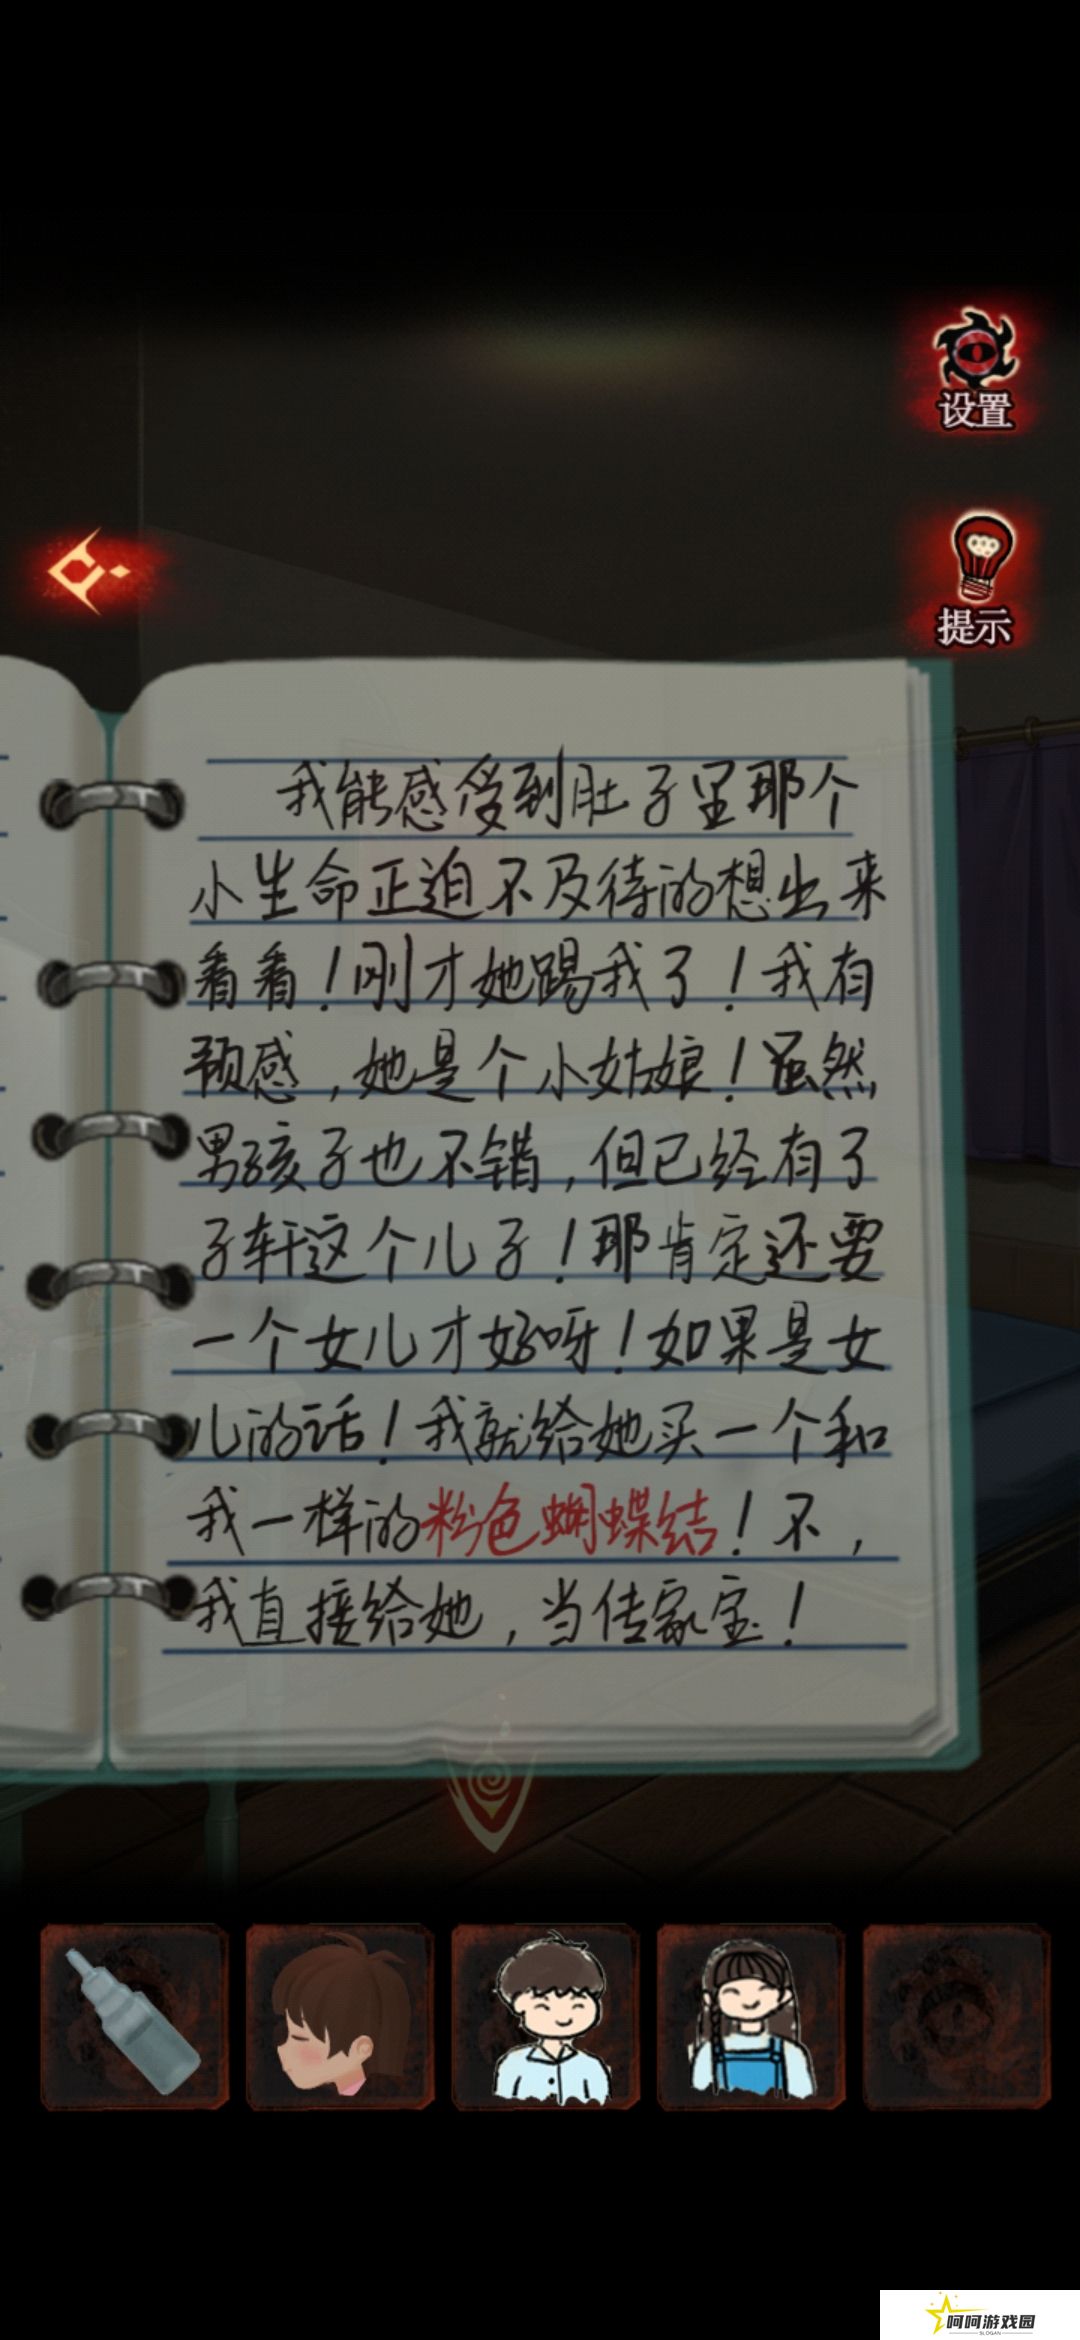 设置
提示
我能感受到肚子里那个
小生命正迫不及待的想出来
看看！刚才她踢我了！我有
预感，她是个小姑娘！虽然
男孩子也不错，但已经有了
子轩这个儿子！那肯定还要
一个女儿才好呀！如果是女
儿的话！我就给她买一个和
我一样的粉色蝴蝶结！不，
我直接给她，当传家宝！
呵呵游戏园
SLOGAN